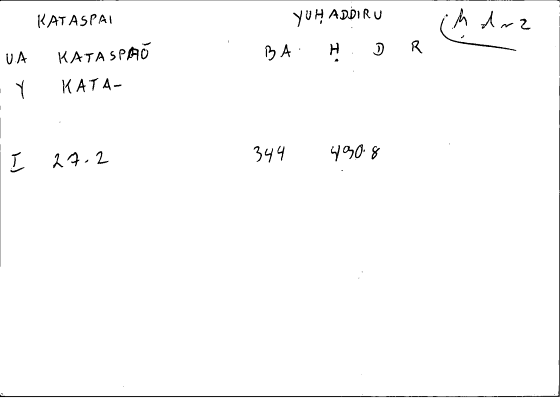 KATASPAI YUHADDIRU ḥ d~z
UA KATASPAŌ BA Ḥ D R
Y KATA-
I 27.2 344 430.8